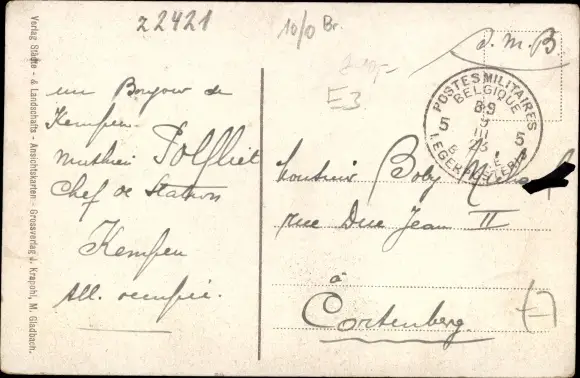 22421
10/0 Br.
S.M.B
E3
POSTES MILITAIRES
BELGIQUE
5 5
LEGERPOSTERIJ
un Bonjour de
Kempen
Polfliet
Chef de Station
Kempen
All. occupée.
Monsieur Boby
rue Duc Jean II
à
Cortenberg
Verlag Städte- & Landschafts-Ansichtskarten-Grossverlag J. Krapohl, M. Gladbach.